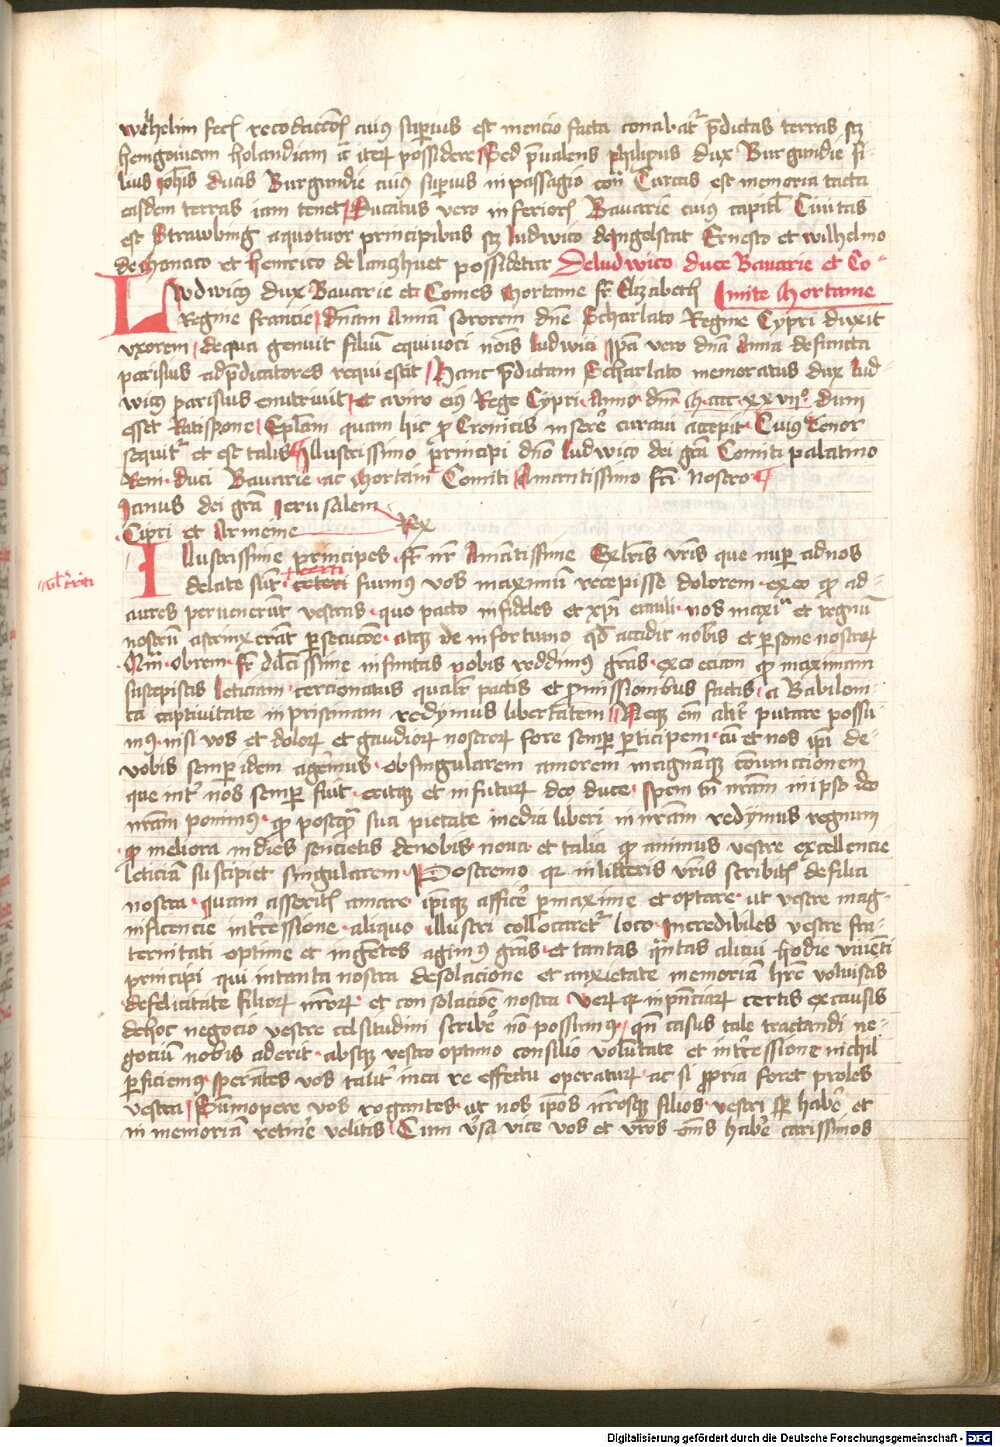 wilhelmi fel recodaccoĩs cuius superius est mencio facta conabatr p̄dictas terras sz
hemgoniam holandiam ic̄ iterz possidere Sed p̄ualens philippus dux Burgundie fi-
lius ioh̄is ducis Burgundie cuius superius in passagio cont̃ Turcas est memoria facta
easdem terras iam tenet Ducatus vero inferioris Bauarie cuius capitl̃ Ciuitas
est Strawbing a quatuor principibus sz ludwico de ingelstat Ernesto et wilhelmo
de monaco et henrico de lanczhuet possidetur De ludwico duce Bauarie et Co-
Lvdwicus dux Bauarie et Comes Mortanie fr̃ Elizabeth mite Mortanie
Regine francie dn̄am Annā sororem dn̄e Scharlato Regine Cypri duxit
vxorem de qua genuit filiū equiuoci nōis ludwicū ip̄a vero dn̄a Anna defuncta
parisius ad p̄dicatores requiescit Hanc p̄dictam Scharlato memoratus dux lud-
wicus parisius enutriuit et a viro eius Rege Cypri Anno dn̄i M cccc xxvijo dum
esset Ratispone Ep̄lam quam hic p̱ Cronicis inserere curaui accepit Cuius tenor
sequitr et est talis Illustrissimo principi dn̄o ludwico dei grā Comiti palatino
Reni duci Bauarie ac Mortanie Comiti Amantissimo frī nostro
Ianus dei grā Ierusalem
Cipri et Armenie Rex
Illustrissime princeps fr̃ nr̃ Amātissime Ex lrīs vrīs que nuper ad nos
delate sūt certi fuimus vos maximū recepisse dolorem ex eo qp ad
aures peruenerūt vestras quo pacto infideles et xp̄i emuli nos maxīa et regnū
nostrū astrinxerāt persecucōe atque de infortunio qd̄ accidit nobis et persone nostre
obrem fr̃ dilectissime infinitas vobis reddimus grās ex eo eciam qp maximam
suscepistis leticiam cercionatus qualr̃ pactis et p̄missionibus factis a Babiloni-
ca captiuitate in pristinam redymus libertatem Neque em̄ alitr̃ putare possu-
mus nisi vos et dolorz et gaudiorz nostrorz fore semper participem cū et nos ip̄i de
vobis semper idem agemus ob singularem amorem magnamque cōiunctionem
que intr̃ nos semper fuit eritque et in futurz deo duce spem tn̄ nrām in ipso deo
nrām ponimus qp postqp̄ sua pietate media liberi in nrām redymus regnum
qp meliora in dies sencietis de nobis noua et talia qp animus vestre excellencie
leticiā suscipiet singularem Postremo qz in litteris vrīs scribitis de filia
nostra quam asseritis amare ip̄ique afficere permaxime et optare ut vestre mag-
nificencie intr̃cessione aliquo illustri collocaretr loco Incredibiles vestre fra-
ternitati optime et ingentes agimus grās et tantas quantas alicui hodie viuēti
principi qui in tanta nostra desolacione et anxietate memoriā hrē voluistis
de felicitate filiorz nrorz et consolacioē nostra verz qz inpn̄ciarz certis ex causis
de hoc negocio vestre celsitudini scribē nō possumus qn̄ casus tale tractandi ne-
gociū nobis aderit absque vestro optimo consilio volūtate et intr̃cessione nichil
perficiemus sperātes vos talitr̃ in ea re effectu operaturz ac si propria foret proles
vestra Summopere vos rogantes ut nos ip̄os nrosque filios vestri sp̄r habē et
in memoriā retinē velitis Cum vr̃sa vice vos et vrōs om̄s habē carissimos